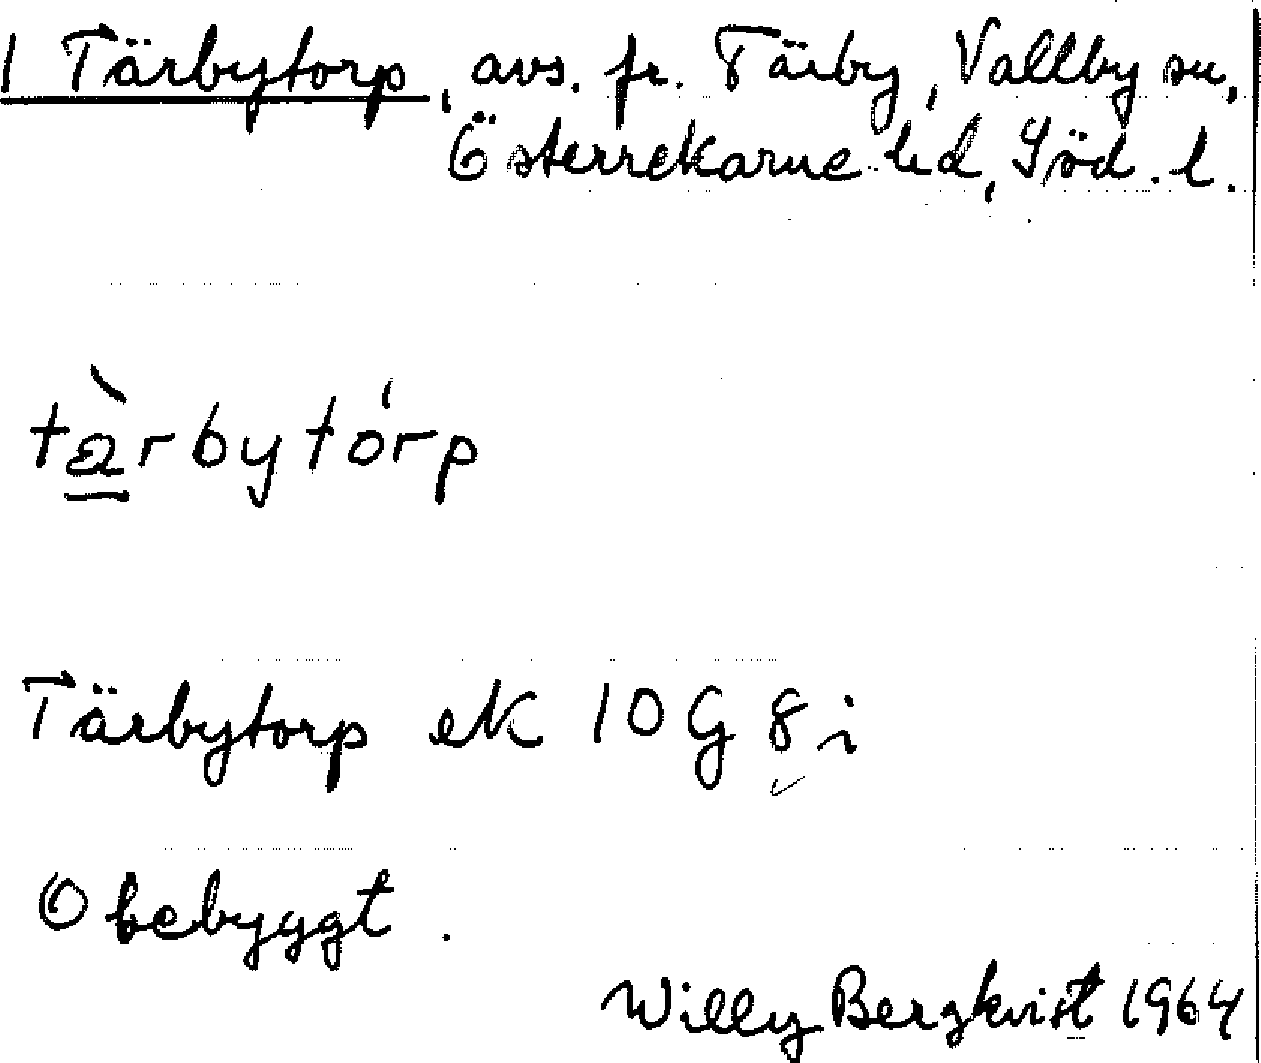 1 Tärbytorp, avs. fr. Tärby, Vallby sn,
Österrekarne hd, Söd. l.
tàrbytórp
Tärbytorp ek 10G 8i
Obebyggt.
Willy Bergkvist 1964